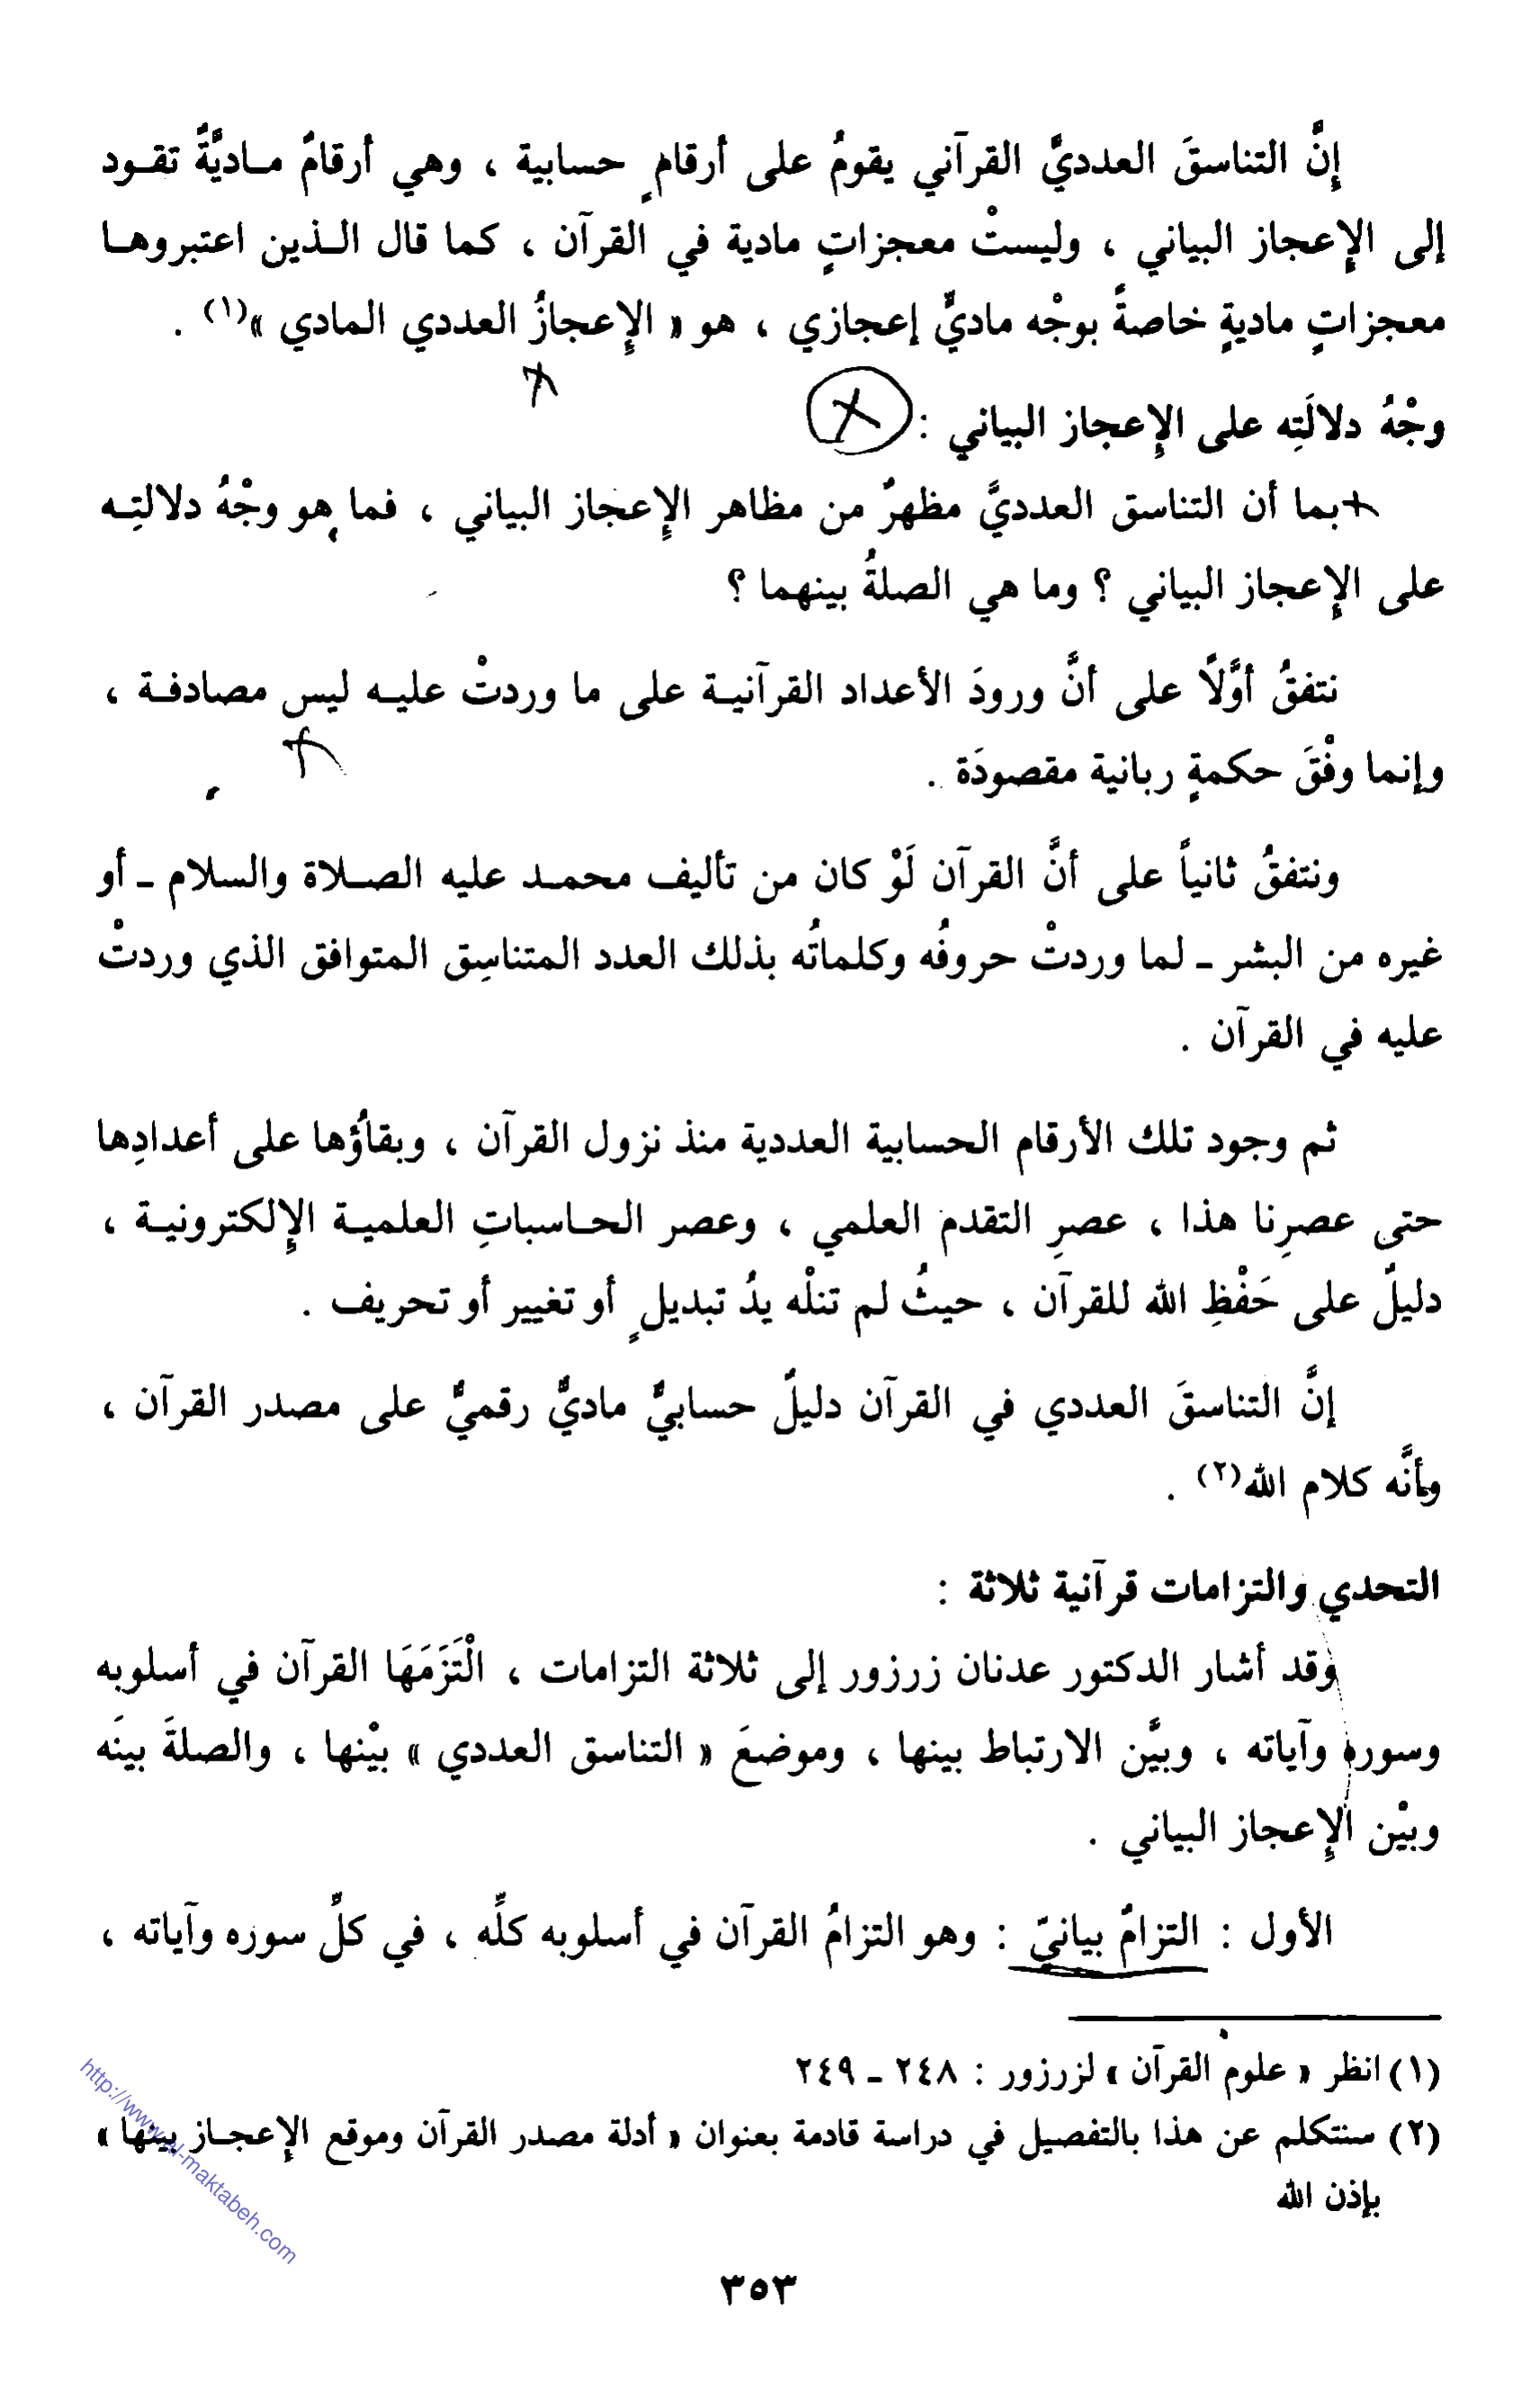 إِنَّ التناسقَ العدديَّ القرآني يقومُ على أرقامٍ حسابية ، وهي أرقامٌ ماديَّةٌ تقود
إلى الإِعجاز البياني ، وليستْ معجزاتٍ مادية في القرآن ، كما قال الذين اعتبروها
معجزاتٍ ماديةٍ خاصةً بوجْه ماديٍّ إعجازي ، هو « الإِعجازُ العددي المادي »(١) .
وجْهُ دلالَتِه على الإِعجاز البياني :
بما أن التناسق العدديَّ مظهرٌ من مظاهر الإِعجاز البياني ، فما هو وجْهُ دلالتِه
على الإِعجاز البياني ؟ وما هي الصلةُ بينهما ؟
نتفقُ أوَّلًا على أنَّ ورودَ الأعداد القرآنية على ما وردتْ عليه ليس مصادفة ،
وإنما وفْقَ حكمةٍ ربانية مقصودَة .
ونتفقُ ثانياً على أنَّ القرآن لَوْ كان من تأليف محمد عليه الصلاة والسلام ـ أو
غيره من البشر ـ لما وردتْ حروفُه وكلماتُه بذلك العدد المتناسِق المتوافق الذي وردتْ
عليه في القرآن .
ثم وجود تلك الأرقام الحسابية العددية منذ نزول القرآن ، وبقاؤُها على أعدادِها
حتى عصرِنا هذا ، عصرِ التقدم العلمي ، وعصر الحاسباتِ العلمية الإِلكترونية ،
دليلٌ على حَفْظِ الله للقرآن ، حيثُ لم تنلْه يدُ تبديلٍ أو تغيير أو تحريف .
إنَّ التناسقَ العددي في القرآن دليلٌ حسابيٌّ ماديٌّ رقميٌّ على مصدر القرآن ،
وأنَّه كلام الله(٢) .
التحدي والتزامات قرآنية ثلاثة :
وقد أشار الدكتور عدنان زرزور إلى ثلاثة التزامات ، الْتَزَمَهَا القرآن في أسلوبه
وسوره وآياته ، وبيَّن الارتباط بينها ، وموضعَ « التناسق العددي » بيْنها ، والصلةَ بينَه
وبيْن الإِعجاز البياني .
الأول : التزامٌ بيانيّ : وهو التزامُ القرآن في أسلوبه كلِّه ، في كلِّ سوره وآياته ،
(١) انظر « علوم القرآن » لزرزور : ٢٤٨ ـ ٢٤٩
(٢) سنتكلم عن هذا بالتفصيل في دراسة قادمة بعنوان « أدلة مصدر القرآن وموقع الإعجاز بينها »
بإذن الله
٣٥٣